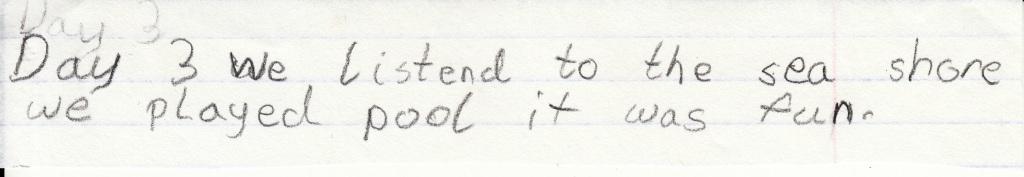 Day 3
Day 3 we listend to the sea shore
we played pool it was fun.